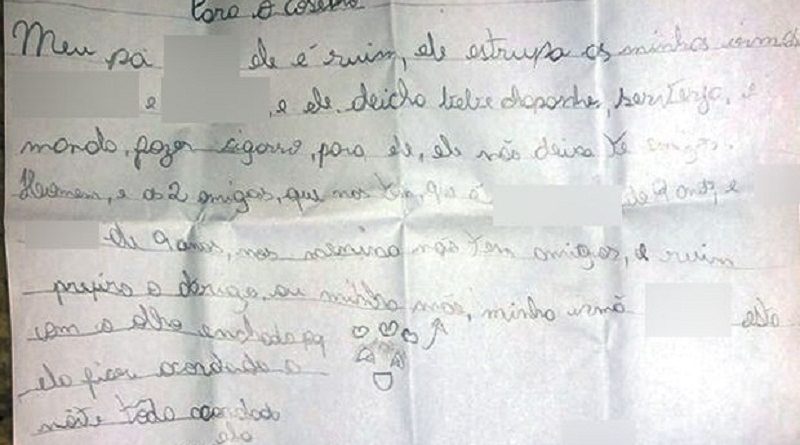 Para o Coselho
Meu pa ele é ruim, ele estrupa as minhas irmãs
e , e ele deicha bebe chapanhe, serveja, e
manda, fazer sigarro, para ele, ele não deixa te amigos.
Homem, e as 2 amigas, que nos tem, que é de 9 anos, e
de 9 anos, nos menina não tem amigos, é ruim
prefiro o abrigo, ou minha mãe, minha irmã esta
com o olho enchado pq
ela ficou acordada a
noite toda acordada
ela